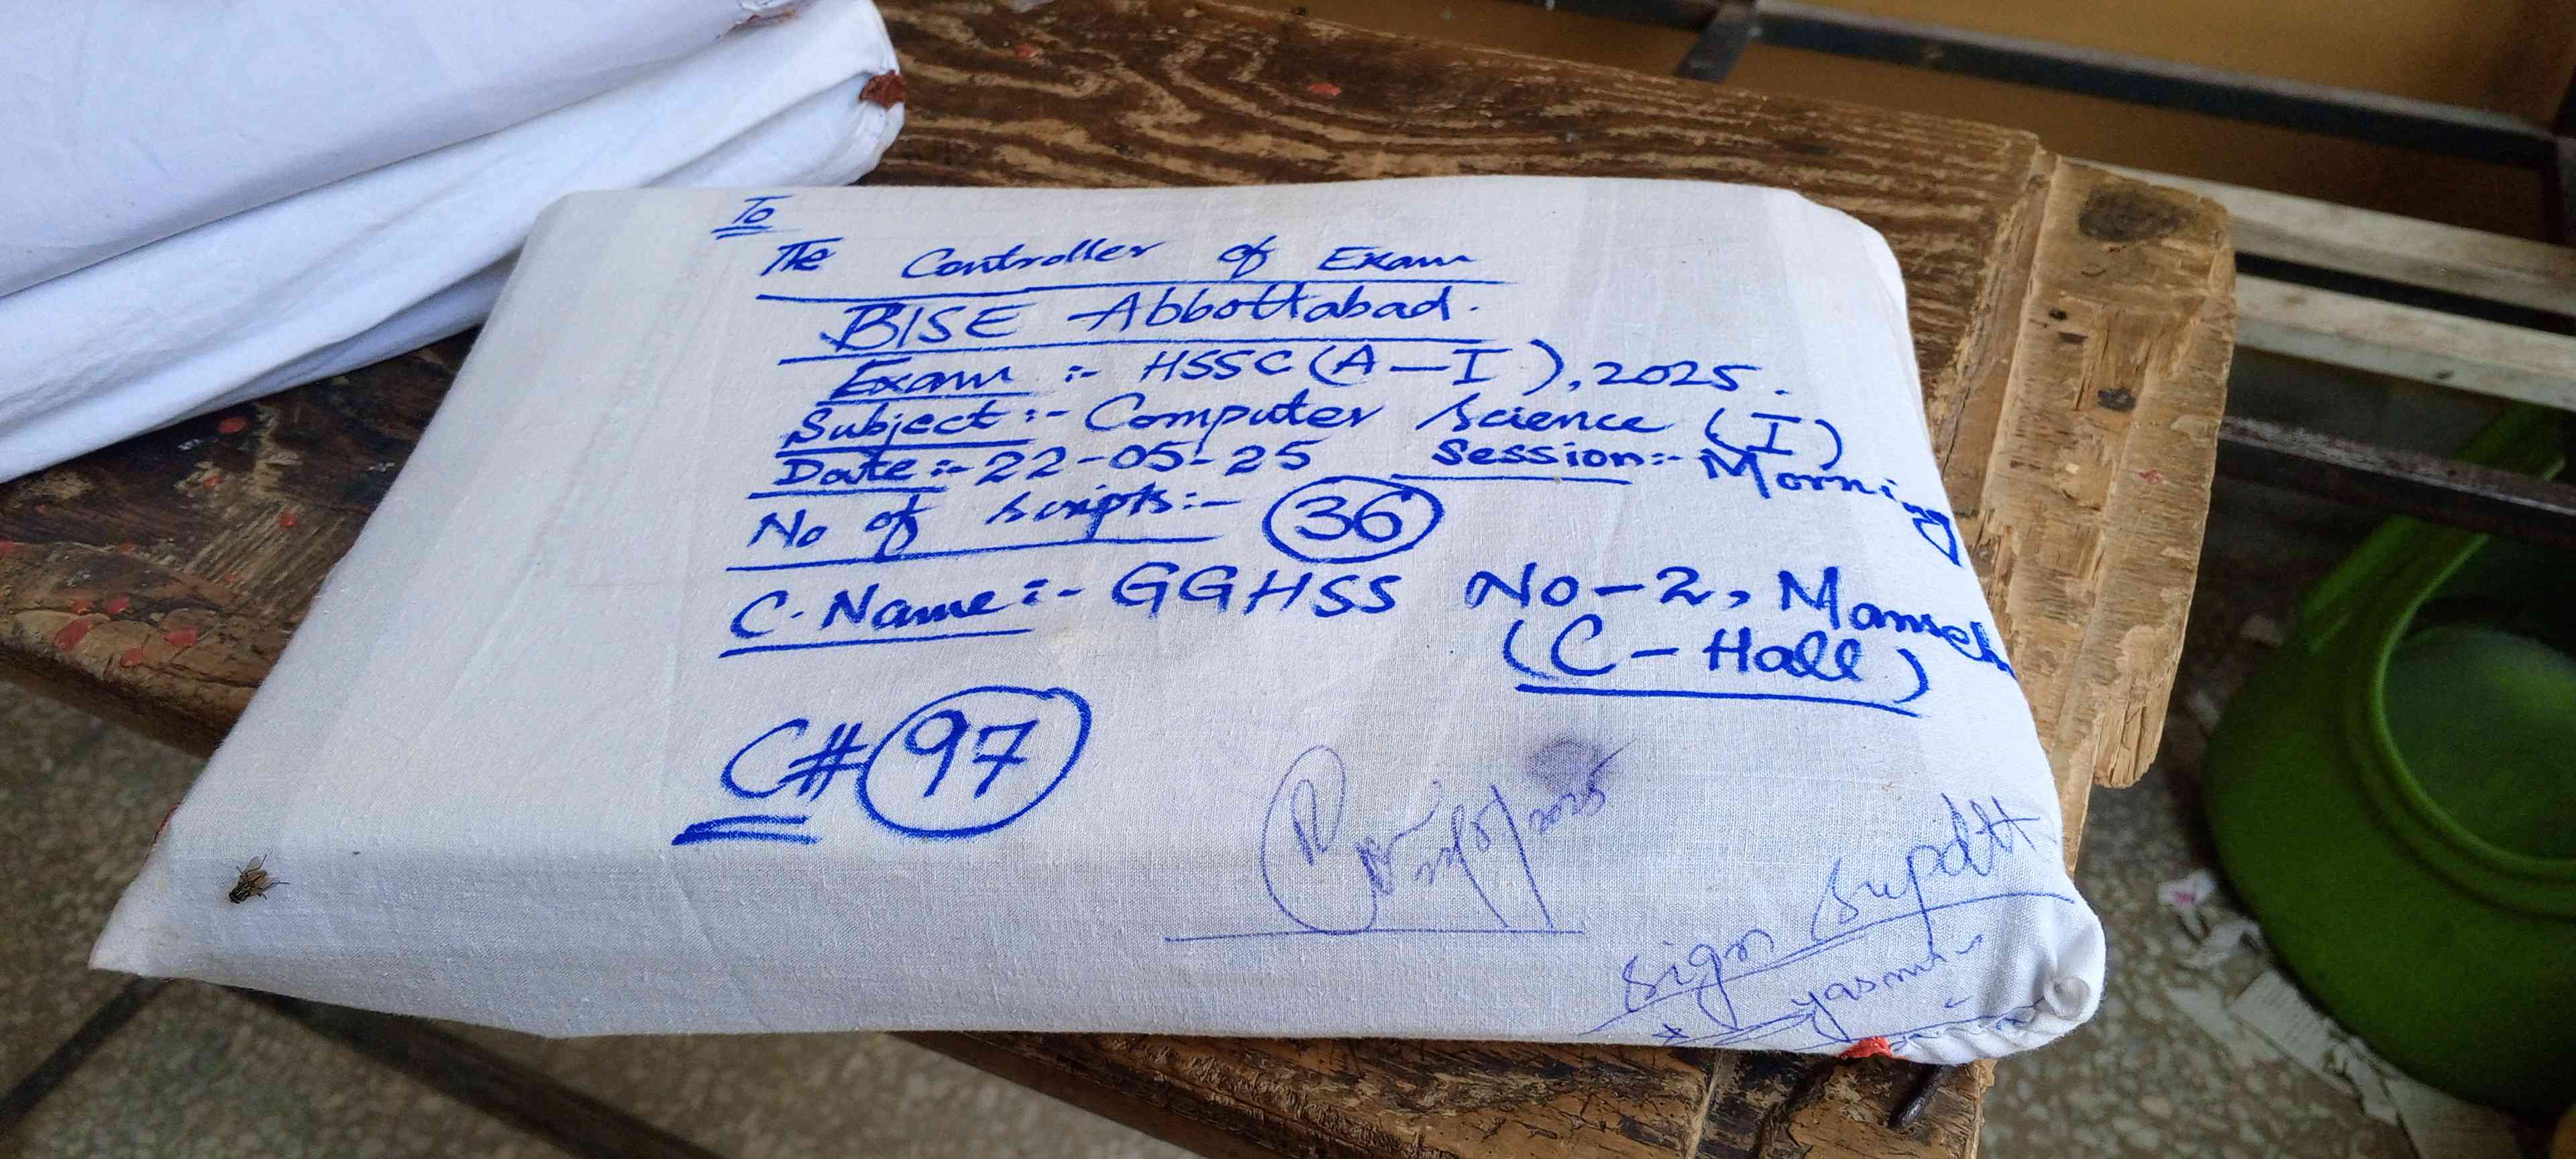 To
The Controller of Exam
BISE Abbottabad.
Exam :- HSSC (A-I), 2025.
Subject :- Computer Science (I)
Date :- 22-05-25 Session :- Morning
No of scripts :- 36
C. Name :- GGHSS No-2, Manseh
(C-Hall)
C# 97
2025
Sign Supdtt
yasmin